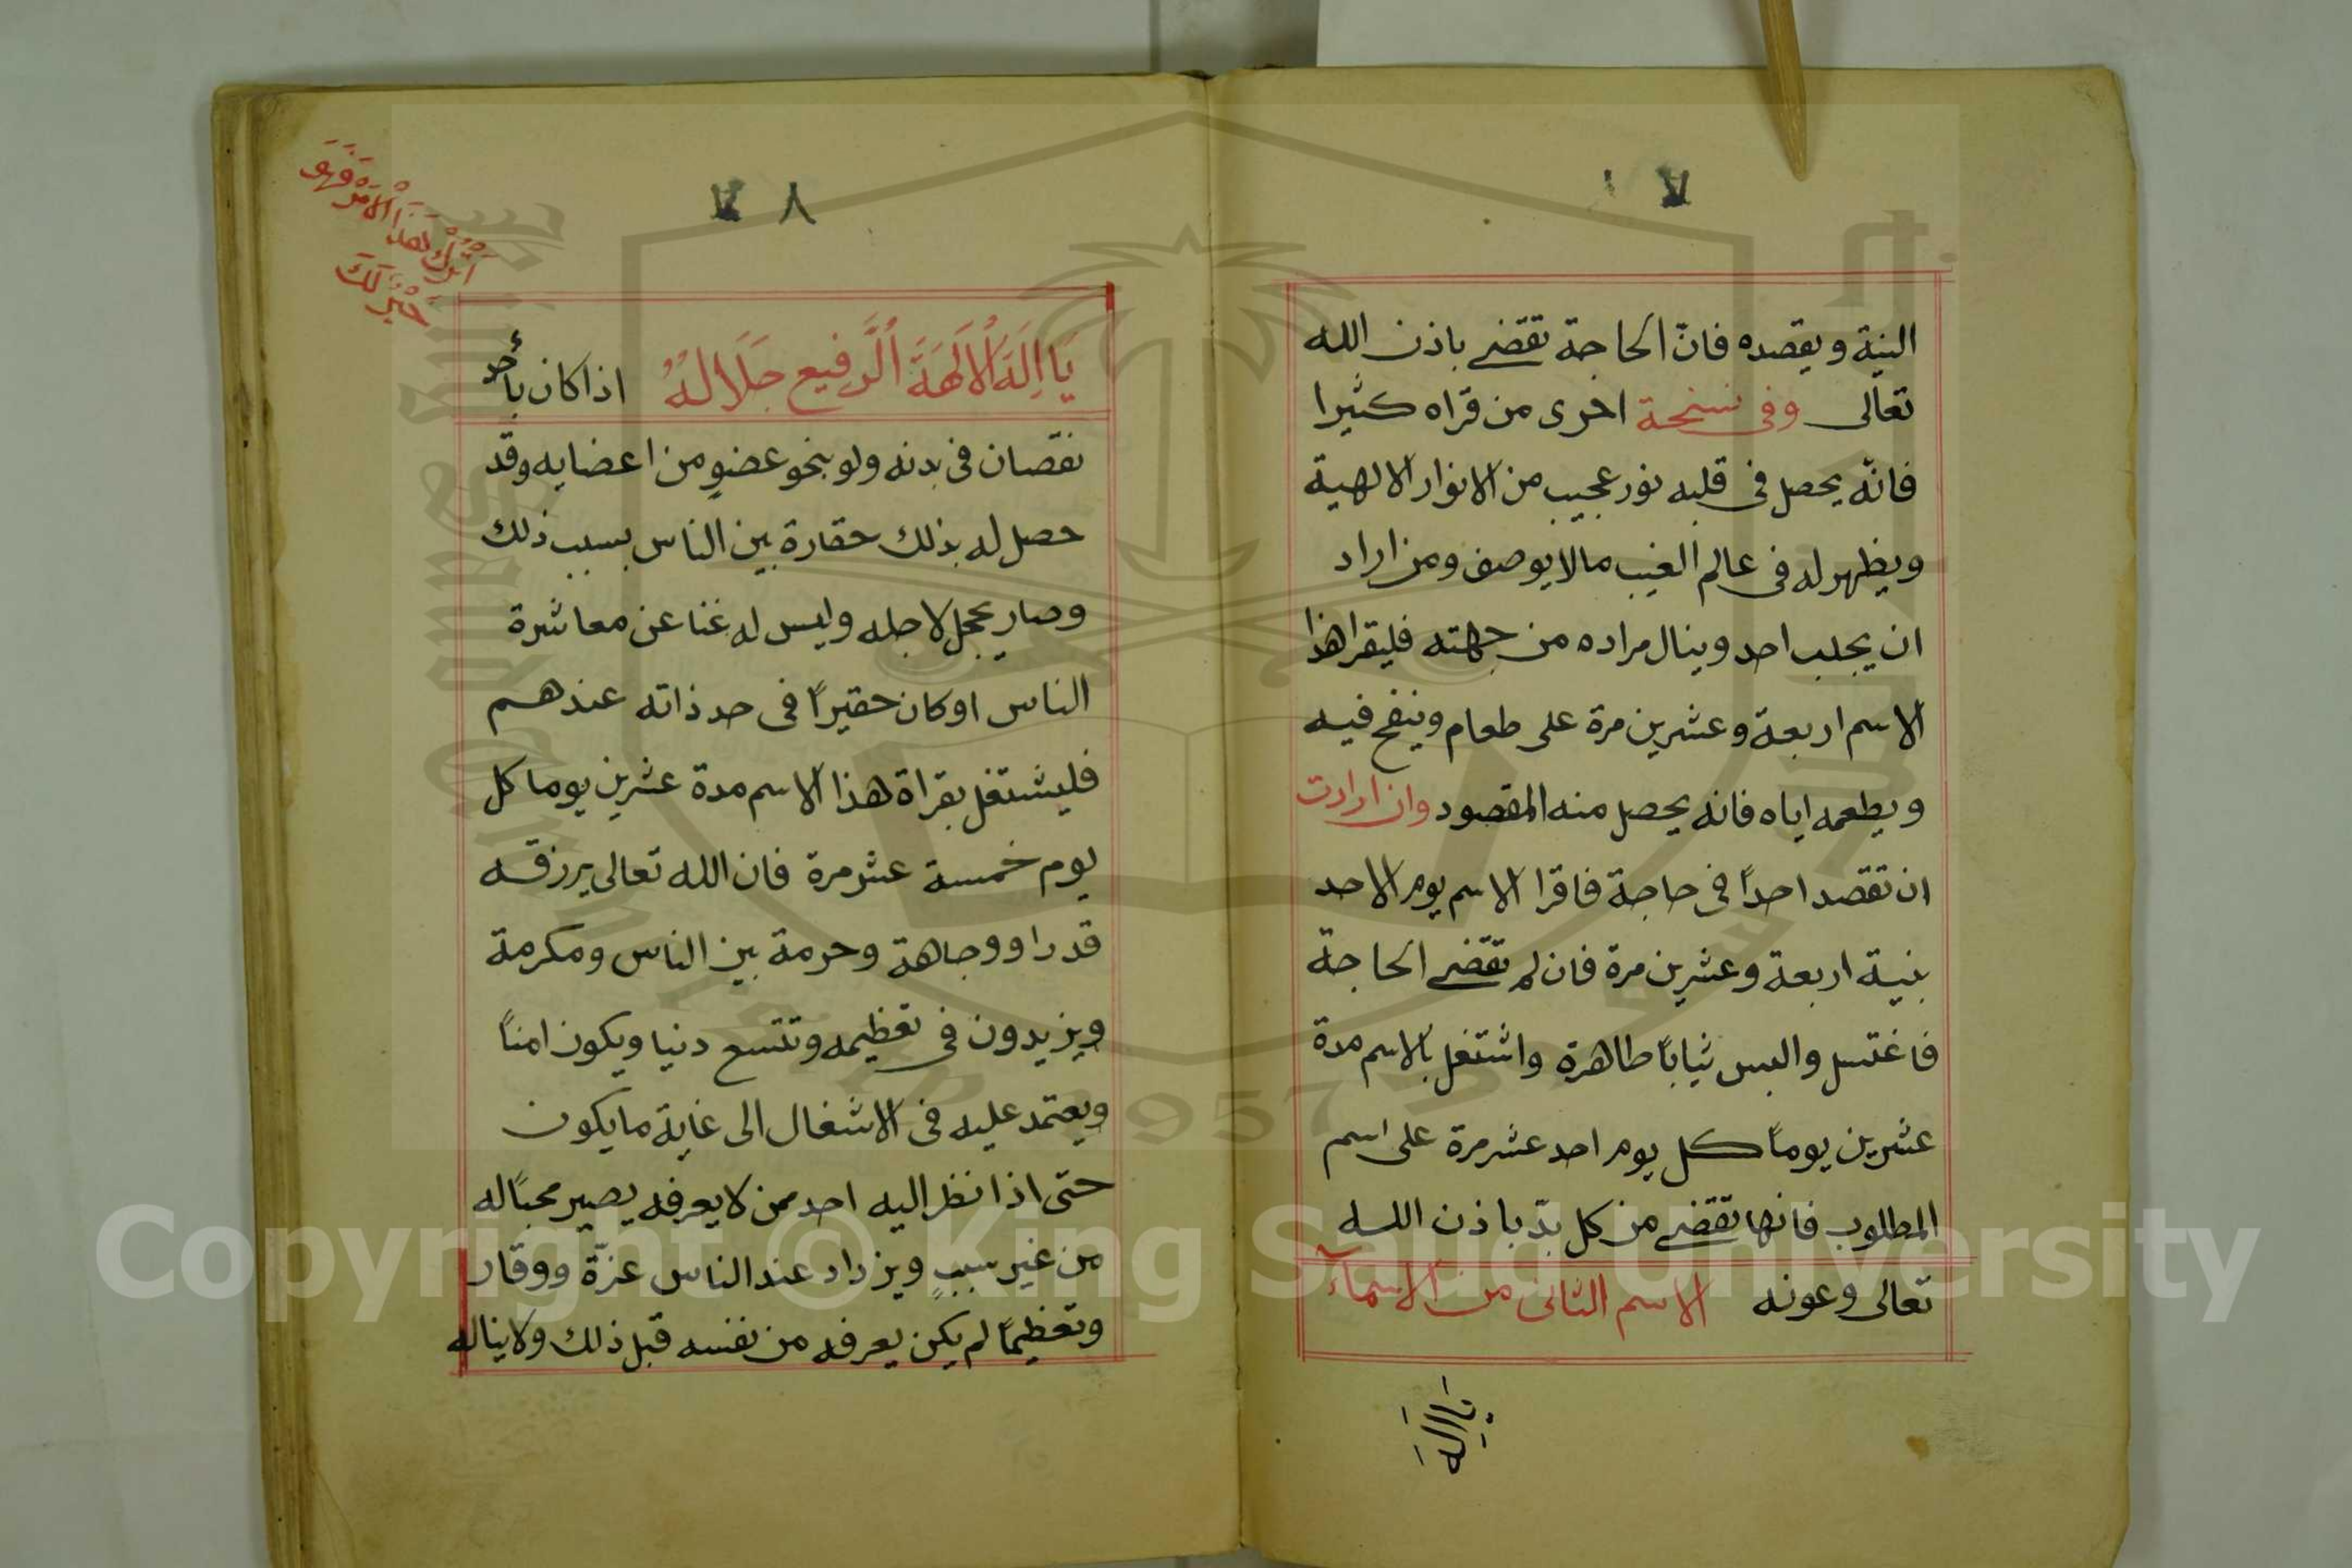 النية ويقصده فانّ الحاجة تقضے باذن الله
تعالى وفى نسخة اخرى من قراه كثيرا
فانّه يحصل فى قلبه نور عجيب من الانوار الالهية
ويظهر له فى عالم الغيب مالا يوصف ومن اراد
ان يجلب احد وينال مراده من جهته فليقرا هذا
الاسم اربعة وعشرين مرة على طعام وينفخ فيه
ويطعمه اياه فانه يحصل منه المقصود وان ارادت
ان تقصد احداً فى حاجة فاقرا الاسم يوم الاحد
بنية اربعة وعشرين مرة فان لم تقضے الحاجة
فاغتسل والبس ثياباً طاهرة واشتغل بالاسم مدة
عشرين يوماً كل يوم احد عشر مرة على اسم
المطلوب فانها تقضے من كل بدّ باذن الله
تعالى وعونه الاسم الثانى من الاسمآء
يَا اِلَهَ
٧ ٨
اَتْرُكْ لِهَذَا الْاَمْرَ فَهُوَ
خَيْرٌ لَكَ
يَا اِلَهَ الْالَهَةَ الرَّفِيع جَلَالهُ اذا كان بأحد
نقصان فى بدنه ولو بنحو عضوٍ من اعضايه وقد
حصل له بذلك حقارة بين الناس بسبب ذلك
وصار يخجل لاجله وليس له غنا عن معاشرة
الناس او كان حقيراً فى حد ذاته عندهم
فليشتغل بقراة هذا الاسم مدة عشرين يوما كل
يوم خمسة عشر مرة فان الله تعالى يرزقه
قدرا ووجاهة وحرمة بين الناس ومكرمة
ويزيدون فى تعظيمه وتتسع دنيا ويكون امناً
ويعتمد عليه فى الاشغال الى غاية مايكون
حتى اذا نظر اليه احد ممن لا يعرفه يصير محباً له
من غير سببٍ ويزداد عند الناس عزّة ووقار
وتعظيماً لم يكن يعرفه من نفسه قبل ذلك ولا يناله
Copyright © King Saud University
1957